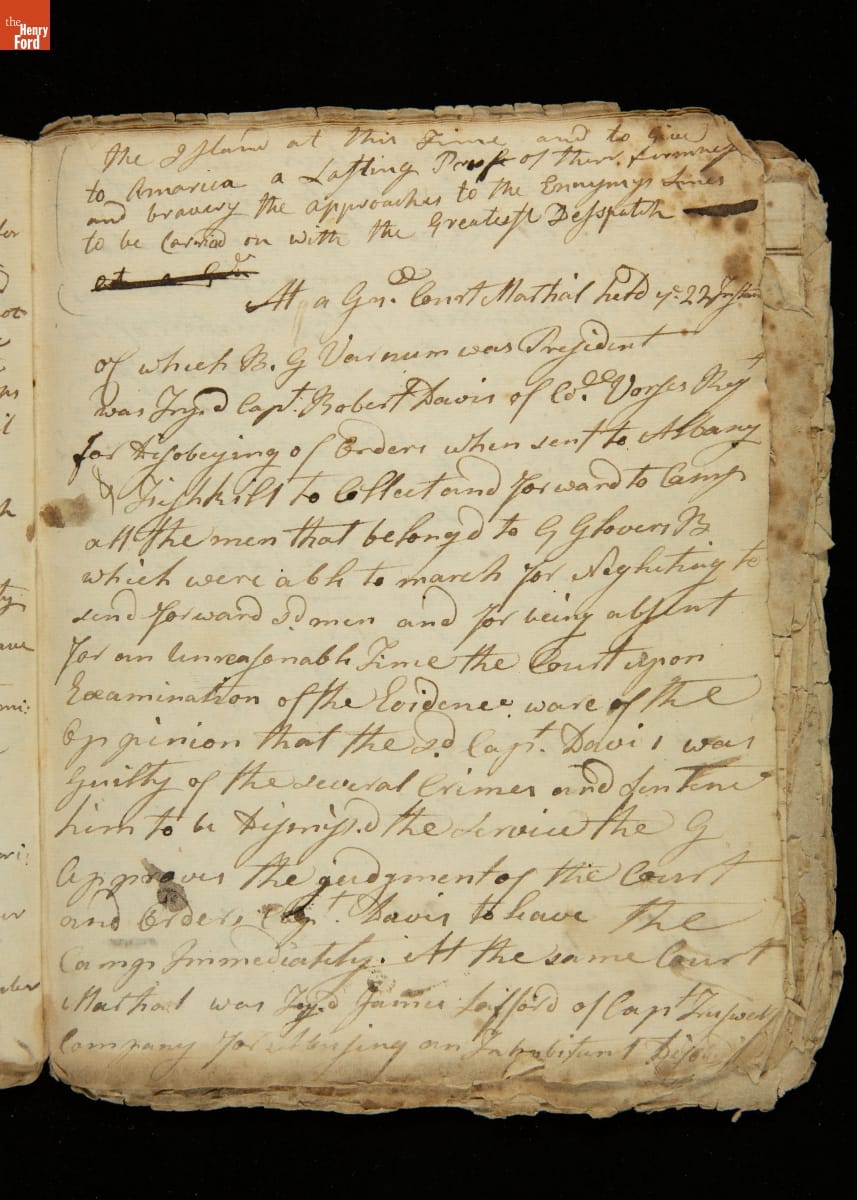 the Henry Ford
the Island at this Time and to Give
to Amarica a Lasting Proof of their firmness
and bravery the approaches to the Ennymys Lines
to be Carried on with the Greatest Despatch
At a Gnl. Court Marthial held ye 22 Instant
of which B. G Varnum was President
was Tryd Capt. Robert Davis of Col. Voses Regt
for Disobeying of Orders when sent to Albany
& Fishkill to Collect and forward to Camp
all the men that belongd to G Glovers B
which were able to march for Neglecting to
send forward sd men and for being absent
for an Unreasonable Time the Court upon
Examination of the Evidence ware of the
Oppinion that the sd Capt. Davis was
Guilty of the several Crimes and Sentence
him to be Dismissd the Service the G
Approves the judgment of the Court
and Orders Capt. Davis to leave the
Camp Immediatily. At the same Court
Marthal was Tryd James Safford of Capt
Company for Abusing an Inhabitant